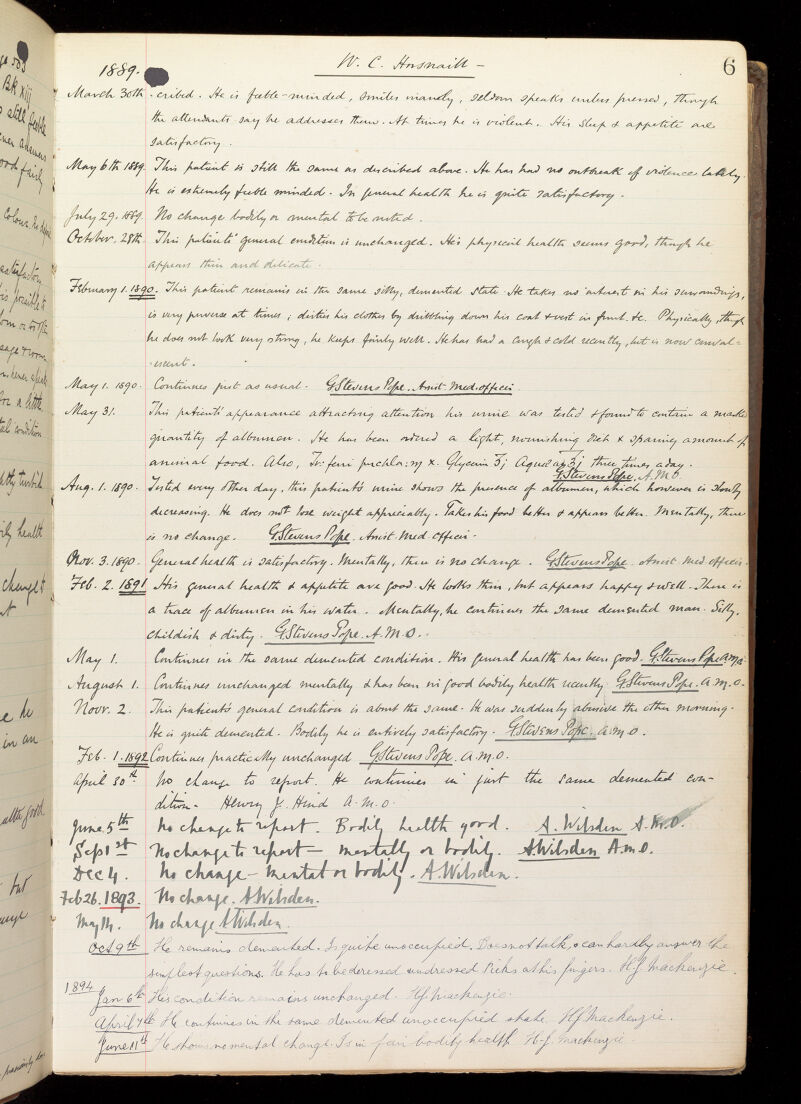 6
1889. W. C. Horsnaill -
March 30th -cribed. He is feeble-minded, smiles inanely, seldom speaks unless pressed, though
the attendants say he addresses them. At times he is violent. His sleep & appetite are
satisfactory.
May 6th 1889. This patient is still the same as described above. He has had no outbreak of violence lately.
He is extremely feeble minded. In general health he is quite satisfactory.
July 29. 1889. No change bodily or mental to be noted.
October. 28th. This patients' general condition is unchanged. His physical health seems good, though he
appears thin and delicate.
February 1. 1890. This patient remains in the same silly, demented state. He takes no interest in his surroundings,
is very perverse at times; dirties his clothes by dribbling down his coat & vest in front &c. Physically, though
he does not look very strong, he keeps fairly well. He has had a cough & cold recently, but is now conval-
-escent.
May 1. 1890. Continues just as usual. G Stevens Pope. Assist. Med. officer
May 31. This patients' appearance attracting attention his urine was tested & found to contain a marked
quantity of albumen. He has been ordered a light, nourishing diet & sparing amount of
animal food. Also, Tr: ferri perchlor: ɱ x. Glycerin ʒj Aquae ad ℥j three times a day.
G Stevens Pope. A.M.O.
Aug. 1. 1890. Tested every other day, this patient's urine shows the presence of albumen, which however is slowly
decreasing. He does not lose weight appreciably. Takes his food better & appears better. Mentally, there
is no change. G Stevens Pope. Assist. Med. officer.
Nov. 3. 1890. General health is satisfactory. Mentally, there is no change. G Stevens Pope. Assist. Med. officer.
Feb. 2. 1891 His general health & appetite are good. He looks thin, but appears happy & well. There is
a trace of albumen in his water. Mentally, he continues the same demented man. Silly,
childish & dirty. G. Stevens Pope. A.M.O.
May 1. Continues in the same demented condition. His general health has been good. G. Stevens Pope A.M.O.
August 1. Continues unchanged mentally & has been in good bodily health recently. G. Stevens Pope. A.M.O.
Novr. 2. This patient's general condition is about the same. He was suddenly abusive the other morning.
He is quite demented. Bodily he is entirely satisfactory. G. Stevens Pope. A.M.O.
Feb. 1. 1892 Continues practically unchanged G Stevens Pope. A.M.O.
April 30th. No change to report. He continues in just the same demented con-
dition. Henry J. Hind A.M.O.
June 5th No change to report. Bodily health good. A. Wilsden A.M.O.
Sept 1st No change to report - mentally or bodily. A Wilsden A.M.O.
Dec 4. No change - mental or bodily. A. Wilsden.
Feb 26. 1893. No change. A Wilsden.
May 14. No change A Wilsden.
Oct 9th He remains demented. Is quite unoccupied. Does not talk, & can hardly answer the
simplest questions. He has to be dressed undressed Picks at his fingers. H.J. Mackenzie.
1894
Jan 6th His condition remains unchanged. H J Mackenzie.
April 7th He continues in the same demented unoccupied state. H J Mackenzie.
June 11th He shows no mental change. Is in fair bodily health H. J. Mackenzie.